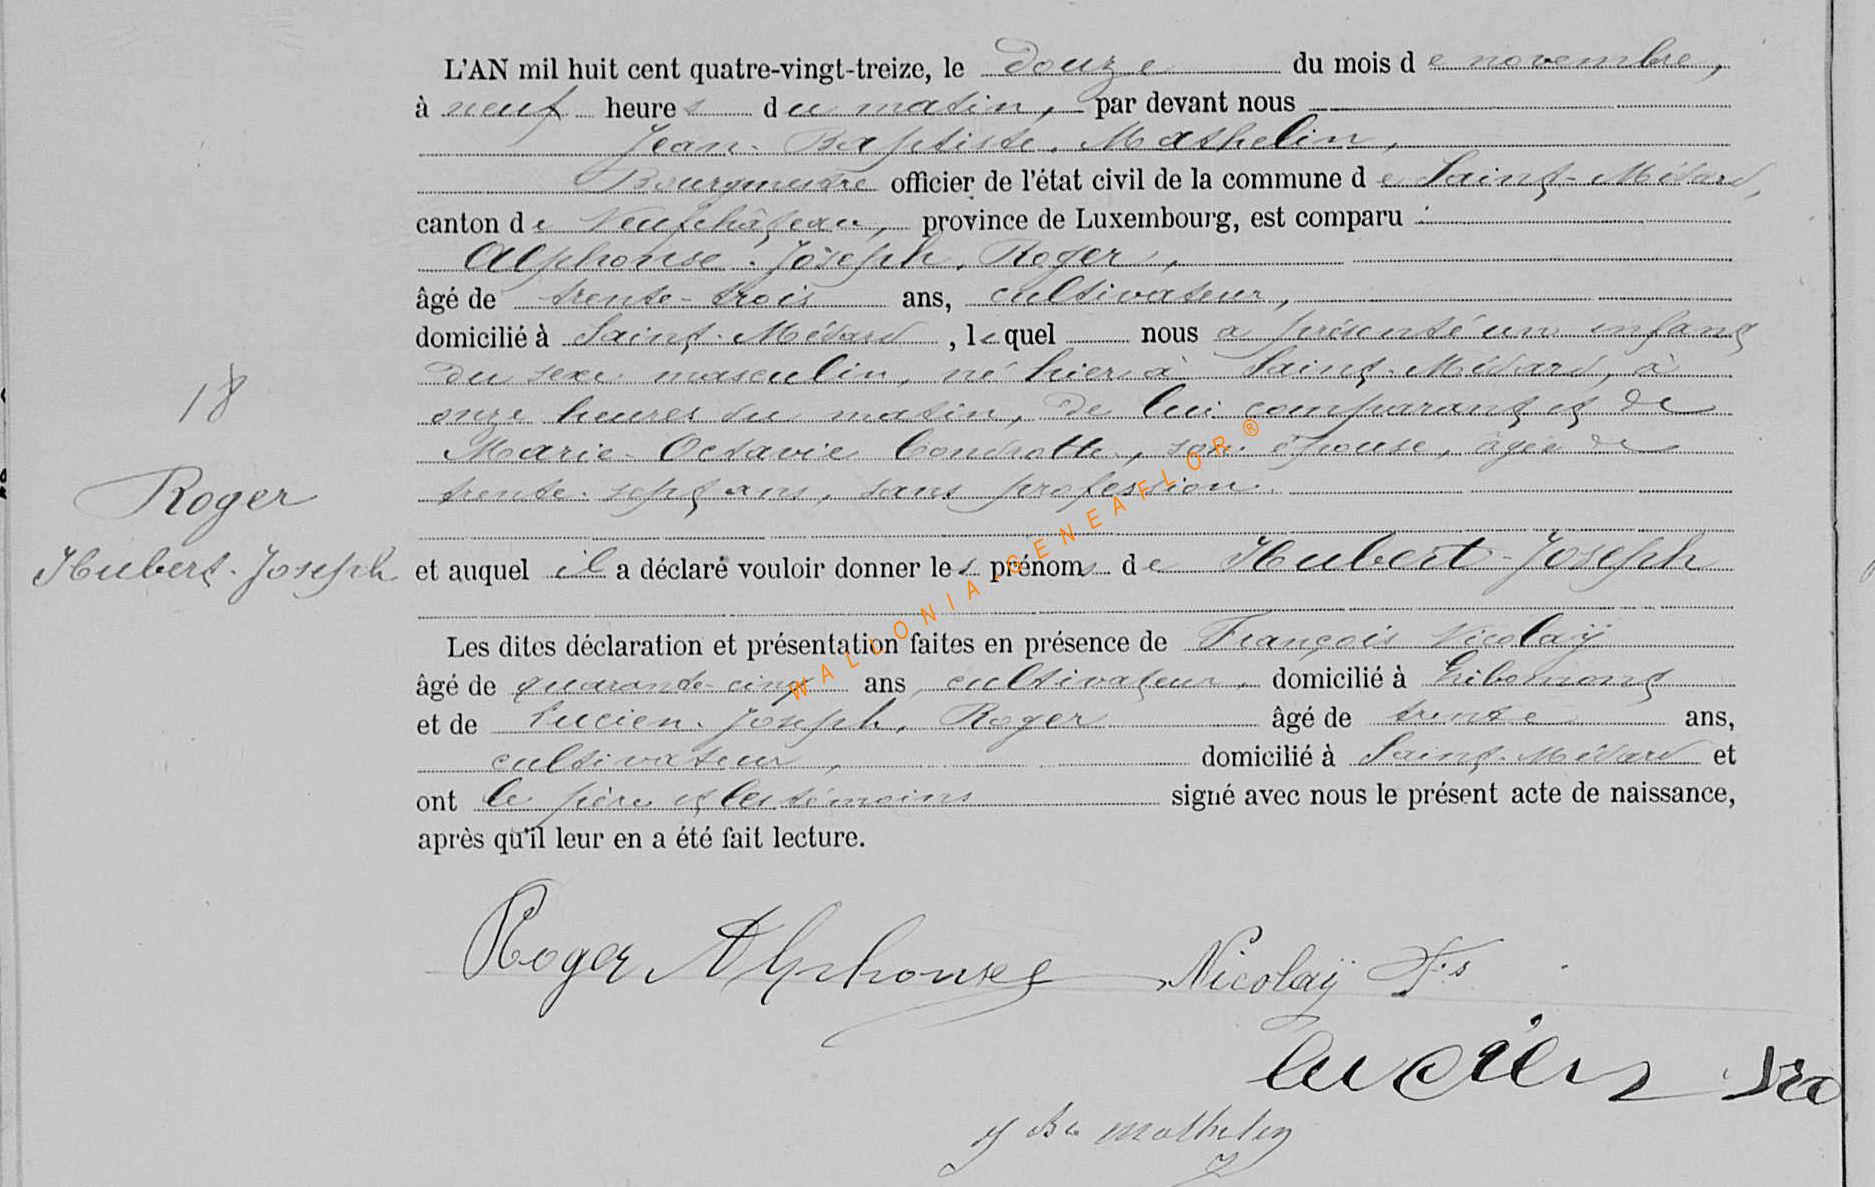 L'AN mil huit cent quatre-vingt-treize, le douze du mois de novembre,
à neuf heures du matin, par devant nous
Jean-Baptiste Mathelin,
Bourgmestre officier de l'état civil de la commune de Saint-Médard,
canton de Neufchâteau, province de Luxembourg, est comparu :
Alphonse-Joseph Roger,
âgé de trente-trois ans, cultivateur,
domicilié à Saint-Médard, lequel nous a présenté un enfant
du sexe masculin, né hier à Saint-Médard, à
onze heures du matin, de lui comparant et de
18
Marie-Octavie Condrotte, son épouse, âgée de
trente-sept ans, sans profession.
Roger
Hubert-Joseph
et auquel il a déclaré vouloir donner les prénoms de Hubert-Joseph
WALLONIA-GENEAFLOR ®
Les dites déclaration et présentation faites en présence de François Nicolaÿ
âgé de quarante-cinq ans, cultivateur, domicilié à Gribomont
et de Lucien-Joseph Roger âgé de trente ans,
cultivateur, domicilié à Saint-Médard et
ont le père et les témoins signé avec nous le présent acte de naissance,
après qu'il leur en a été fait lecture.
Roger Alphonse Nicolaÿ Fs
lucien
J Bte Mathelin